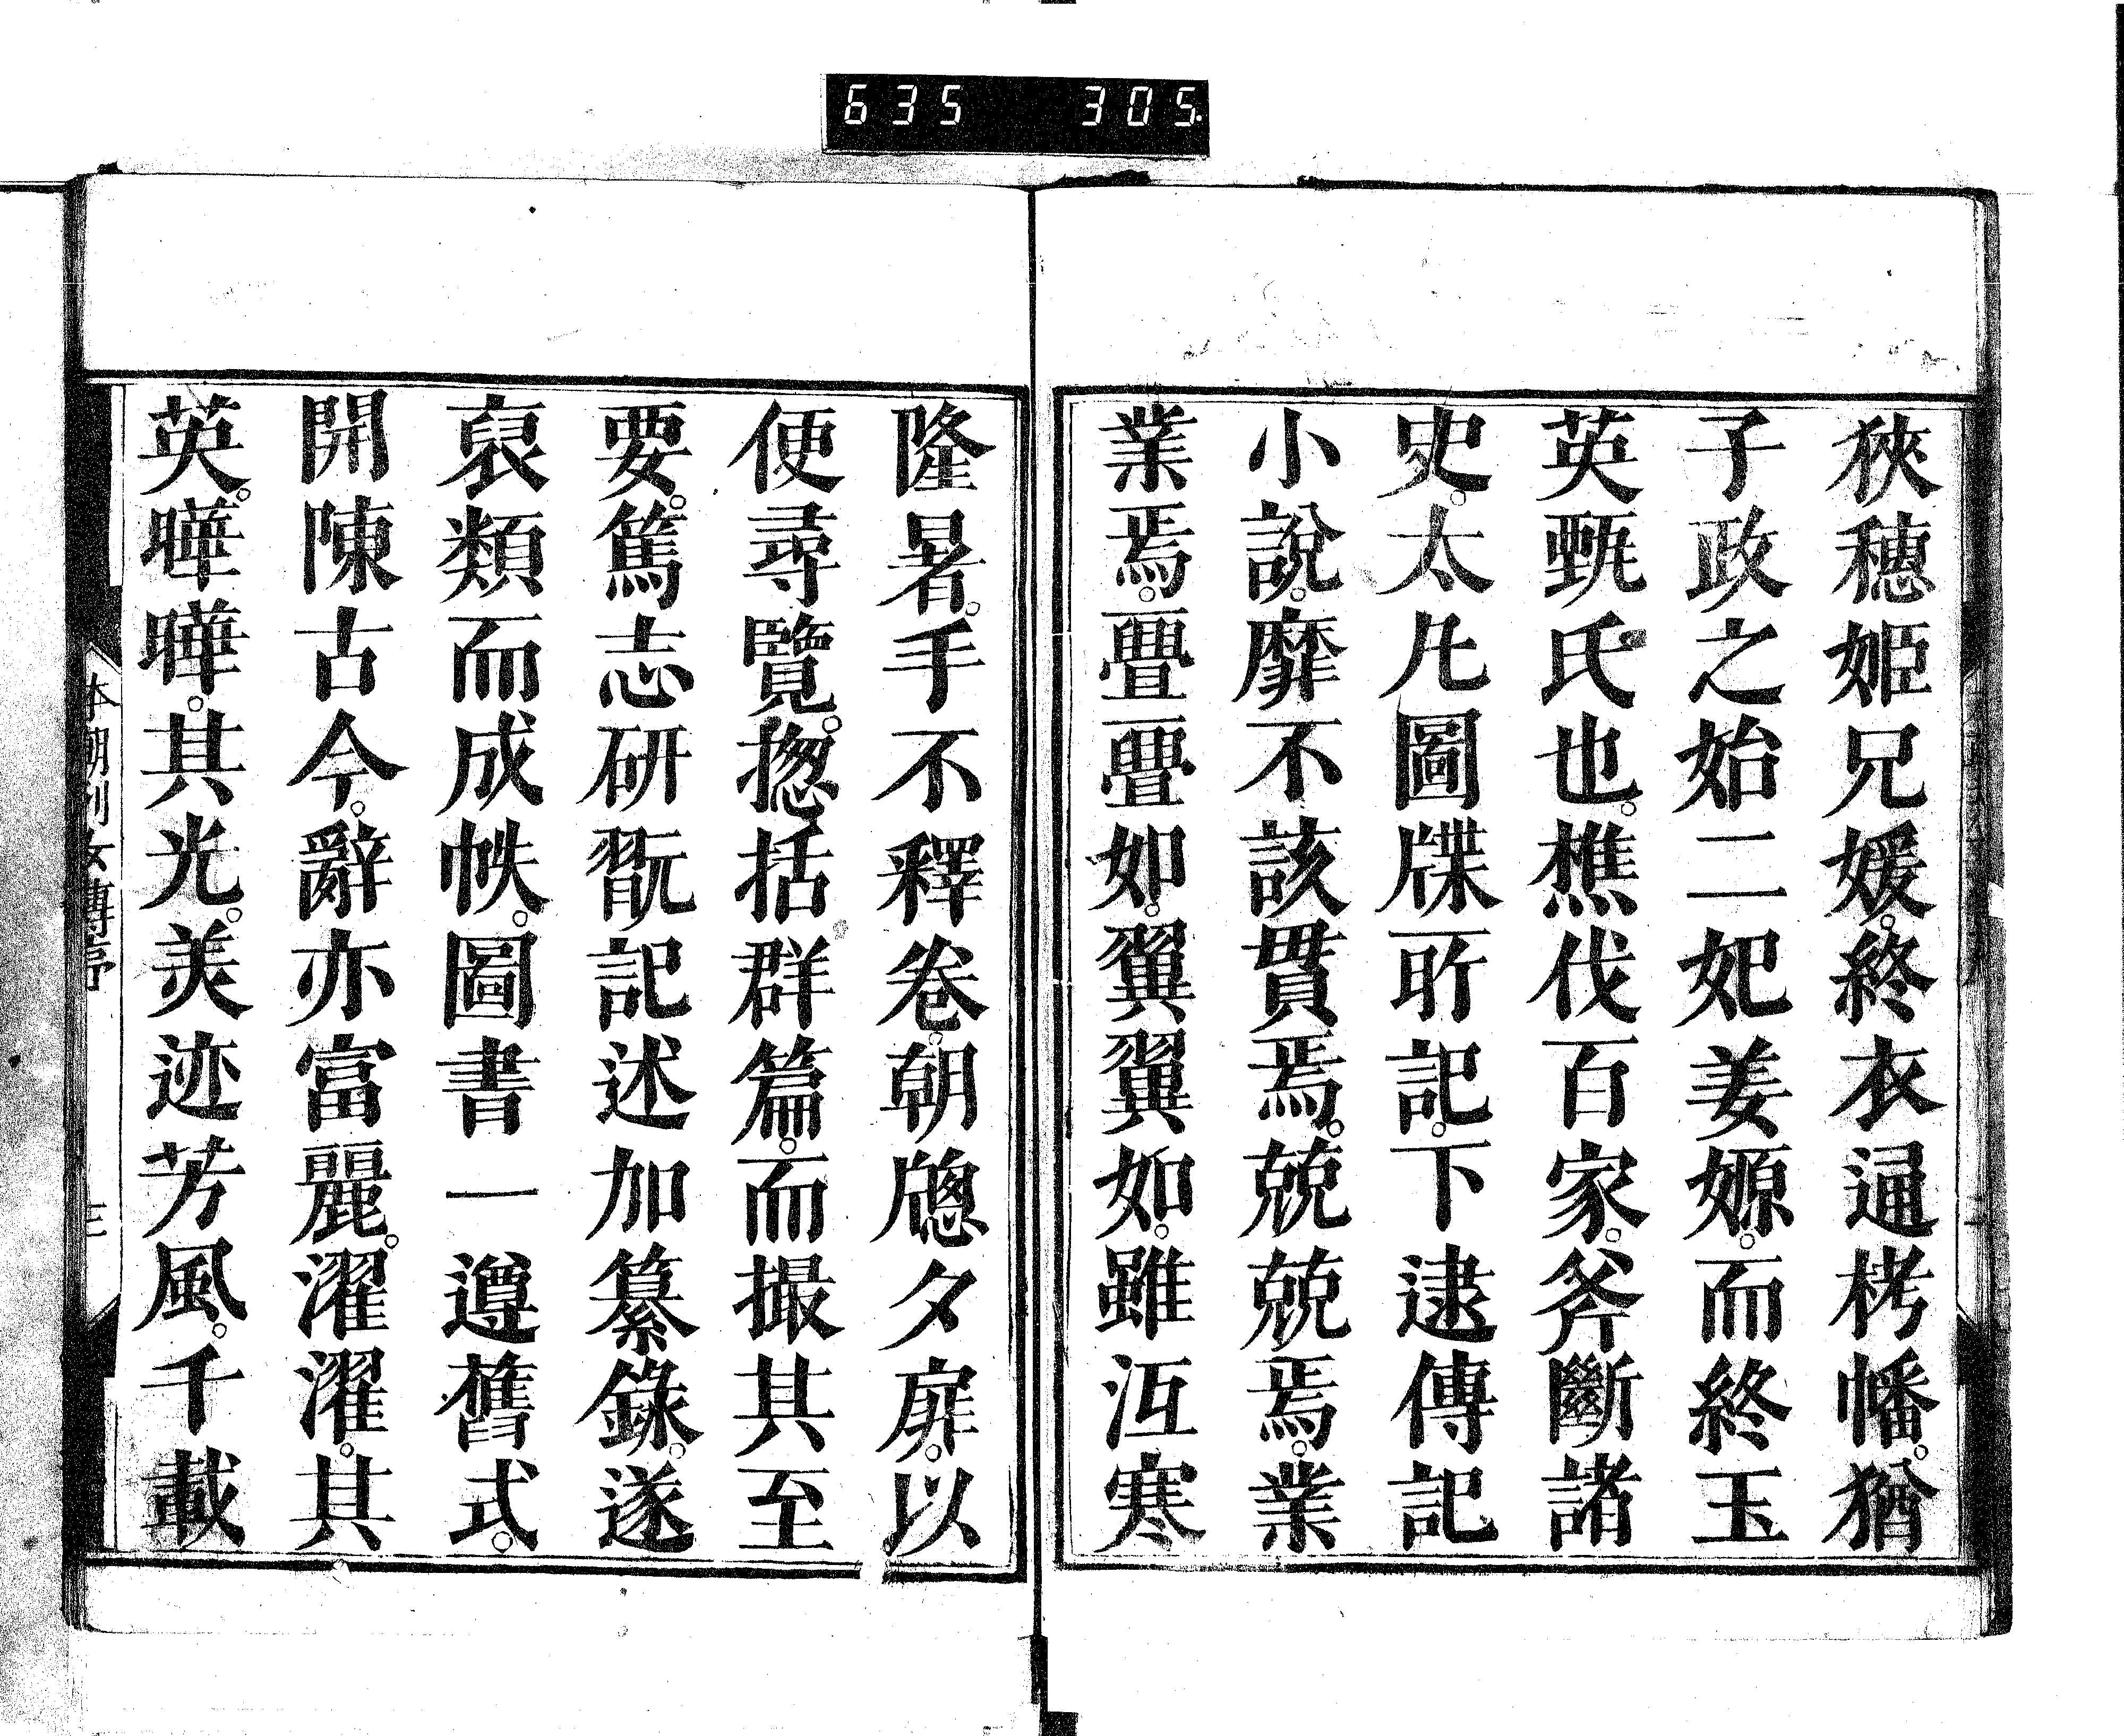 狹穗姬兄媛。終衣通栲幡。猶
子政之始二妃姜嫄。而終玉
英甄氏也。樵伐百家。斧斷諸
史。太凡圖牒所記。下逮傳記
小說。靡不該貫焉。兢兢焉。業
業焉。亹亹如。翼翼如。雖沍寒
隆暑。手不釋卷。朝牕夕扉。以
便尋覽。揔括群篇。而撮其至
要。篤志研翫記述加纂錄。遂
裒類而成帙。圖書一遵舊式。
開陳古今。辭亦富麗。濯濯。其
英。曄曄。其光。美迹芳風。千載
本朝列女傳序
三
635 305